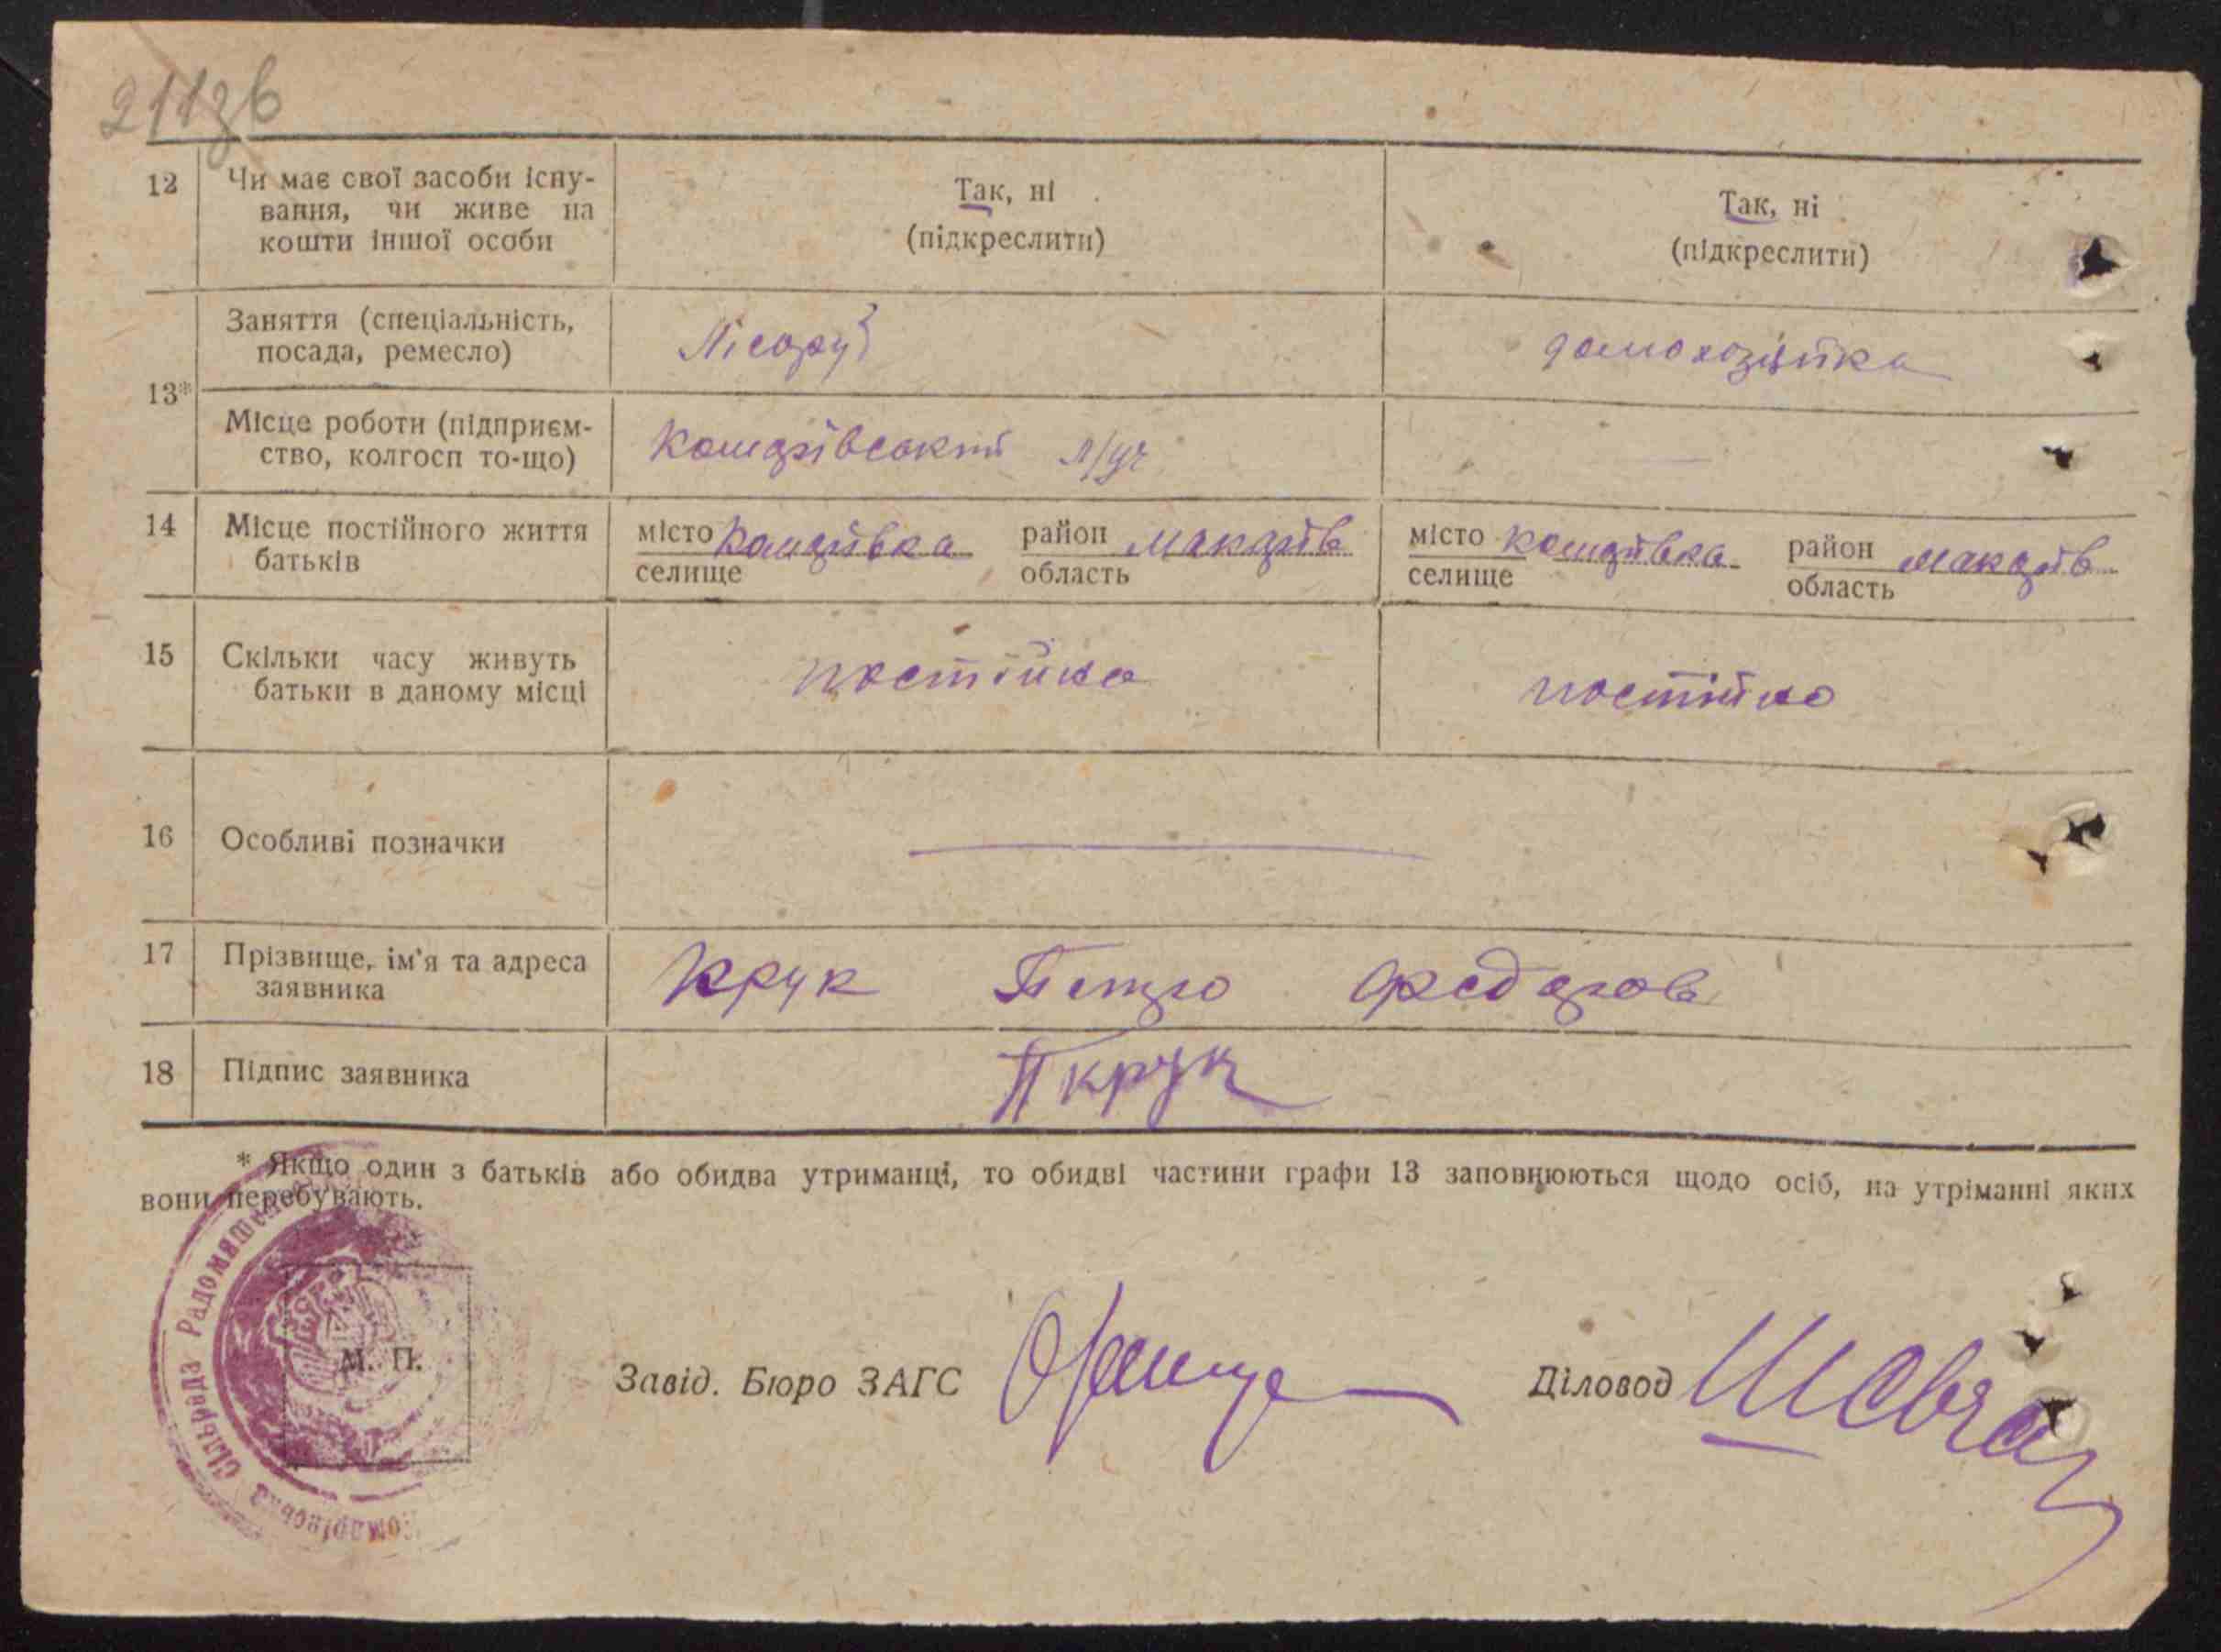 211зв
12 Чи має свої засоби існу-
вання, чи живе на
кошти іншої особи
Так, ні
(підкреслити)
Так, ні
(підкреслити)
13*
Заняття (спеціальність,
посада, ремесло)
Лісоруб
домохозяйка
Місце роботи (підприєм-
ство, колгосп то-що)
Комарівський л/уч
—
14 Місце постійного життя
батьків
місто Комарівка район Макарів
селище область
місто Комарівка район Макарів
селище область
15 Скільки часу живуть
батьки в даному місці
постійно
постійно
16 Особливі позначки
—
17 Прізвище, ім'я та адреса
заявника
Крук Петро Федоров
18 Підпис заявника
П Крук
* Якщо один з батьків або обидва утриманці, то обидві частини графи 13 заповнюються щодо осіб, на утріманні яких
вони перебувають.
Комарівська Сільрада
М. П.
Завід. Бюро ЗАГС
Діловод